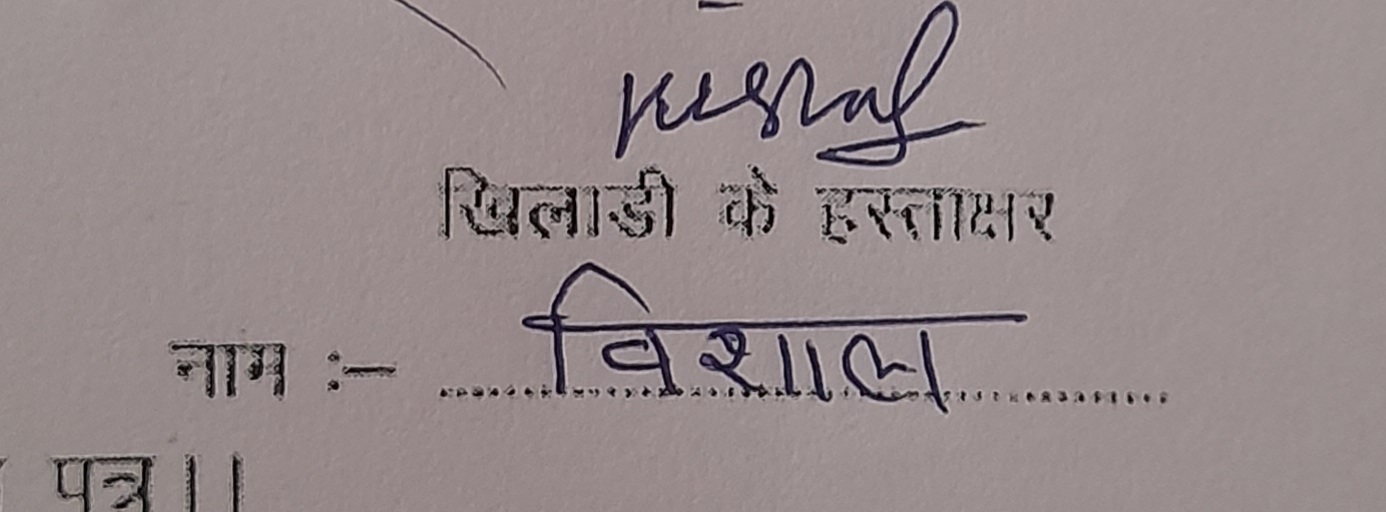 Vishal
खिलाडी के हस्ताक्षर
नाम :- विशाल
पत्र।।